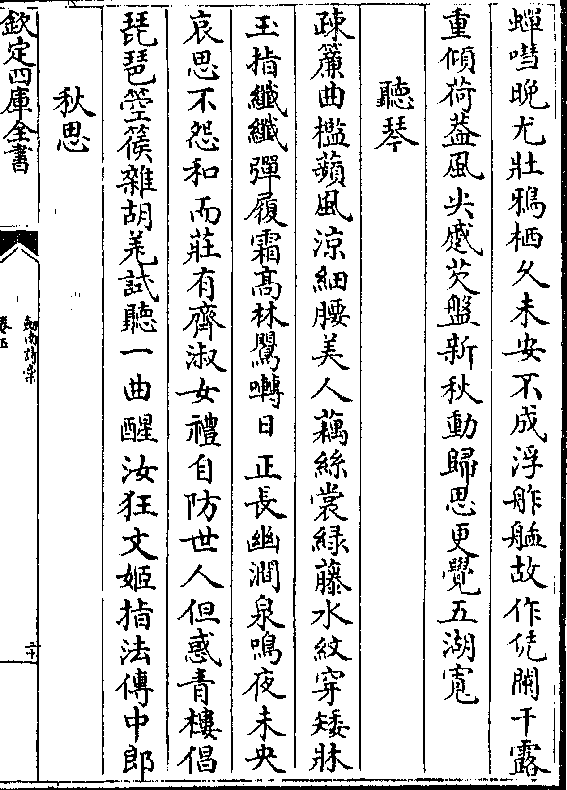 蟬嘒晚尤壯鴉栖久未安不成浮舴艋故作凭闌干露
重傾荷葢風尖蹙芡盤新秋動歸思更覺五湖寬
聽琴
疎簾曲檻蘋風涼細腰美人藕絲裳緑藤水紋穿矮牀
玉指纖纖彈履霜髙林鸎囀日正長幽澗泉鳴夜未央
哀思不怨和而莊有齊淑女禮自防世人但惑青樓倡
琵琶箜篌雜胡羌試聽一曲醒汝狂文姬指法傳中郎
秋思
欽定四庫全書
劍南詩槀
卷五